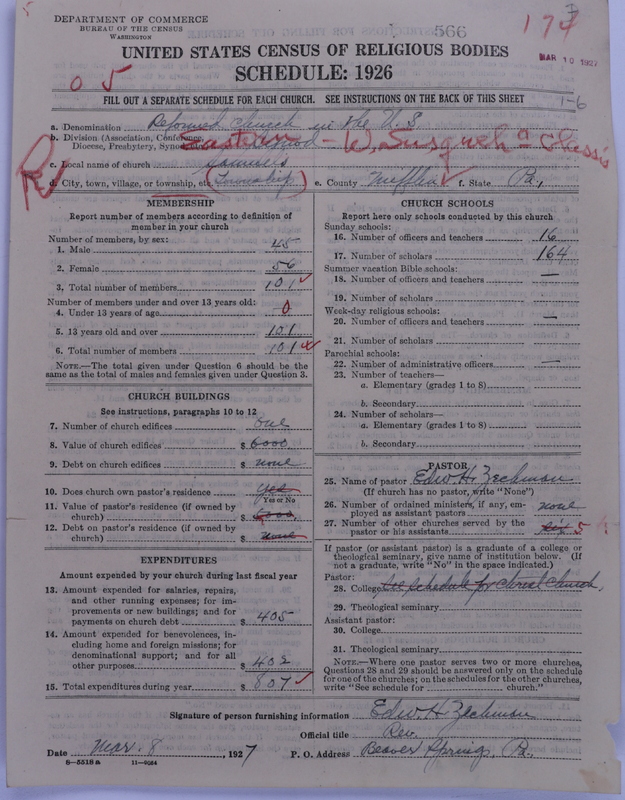 DEPARTMENT OF COMMERCE
BUREAU OF THE CENSUS
WASHINGTON
566
174
MAR 10 1927
UNITED STATES CENSUS OF RELIGIOUS BODIES
SCHEDULE: 1926
0 5
1-6
FILL OUT A SEPARATE SCHEDULE FOR EACH CHURCH. SEE INSTRUCTIONS ON THE BACK OF THIS SHEET
a. Denomination Reformed Church in the U.S.
b. Division (Association, Conference,
Diocese, Presbytery, Synod Eastern Synod - W. Susqueha Classis
c. Local name of church Samuels
d. City, town, village, or township, etc (Township) e. County Mifflin f. State Pa,
R
MEMBERSHIP
Report number of members according to definition of
member in your church
Number of members, by sex:
1. Male 45
2. Female 56
3. Total number of members 101
Number of members under and over 13 years old:
4. Under 13 years of age 0
5. 13 years old and over 101
6. Total number of members 101
NOTE.—The total given under Question 6 should be
same as the total of males and females given under Question 3.
CHURCH BUILDINGS
See instructions, paragraphs 10 to 12
7. Number of church edifices one
8. Value of church edifices $ 6000
9. Debt on church edifices $ none
10. Does church own pastor's residence yes
Yes or No
11. Value of pastor's residence (if owned by
church) $
12. Debt on pastor's residence (if owned by
church) $ none
EXPENDITURES
Amount expended by your church during last fiscal year
13. Amount expended for salaries, repairs,
and other running expenses; for im-
provements or new buildings; and for
payments on church debt $ 405
14. Amount expended for benevolences, in-
cluding home and foreign missions; for
denominational support; and for all
other purposes $ 402
15. Total expenditures during year $ 807
CHURCH SCHOOLS
Report here only schools conducted by this church
Sunday schools:
16. Number of officers and teachers 16
17. Number of scholars 164
Summer vacation Bible schools:
18. Number of officers and teachers —
19. Number of scholars
Week-day religious schools:
20. Number of officers and teachers —
21. Number of scholars
Parochial schools:
22. Number of administrative officers —
23. Number of teachers—
a. Elementary (grades 1 to 8)
b. Secondary
24. Number of scholars—
a. Elementary (grades 1 to 8)
b. Secondary
PASTOR
25. Name of pastor Edw H. Zechman
(If church has no pastor, write "None")
26. Number of ordained ministers, if any, em-
ployed as assistant pastors none
27. Number of other churches served by the
pastor or his assistants six 5
If pastor (or assistant pastor) is a graduate of a college or
theological seminary, give name of institution below. (If
not a graduate, write "No" in the space indicated.)
Pastor:
28. College See schedule for Christ Church,
29. Theological seminary
Assistant pastor:
30. College
31. Theological seminary
NOTE.—Where one pastor serves two or more churches,
Questions 28 and 29 should be answered only on the schedule
for one of the churches; on the schedules for the other churches,
write "See schedule for church."
Signature of person furnishing information Edw H Zechman
Official title Rev.
Date Mar. 8, 1927 P. O. Address Beaver Springs, Pa.
8—5518a 11—9064